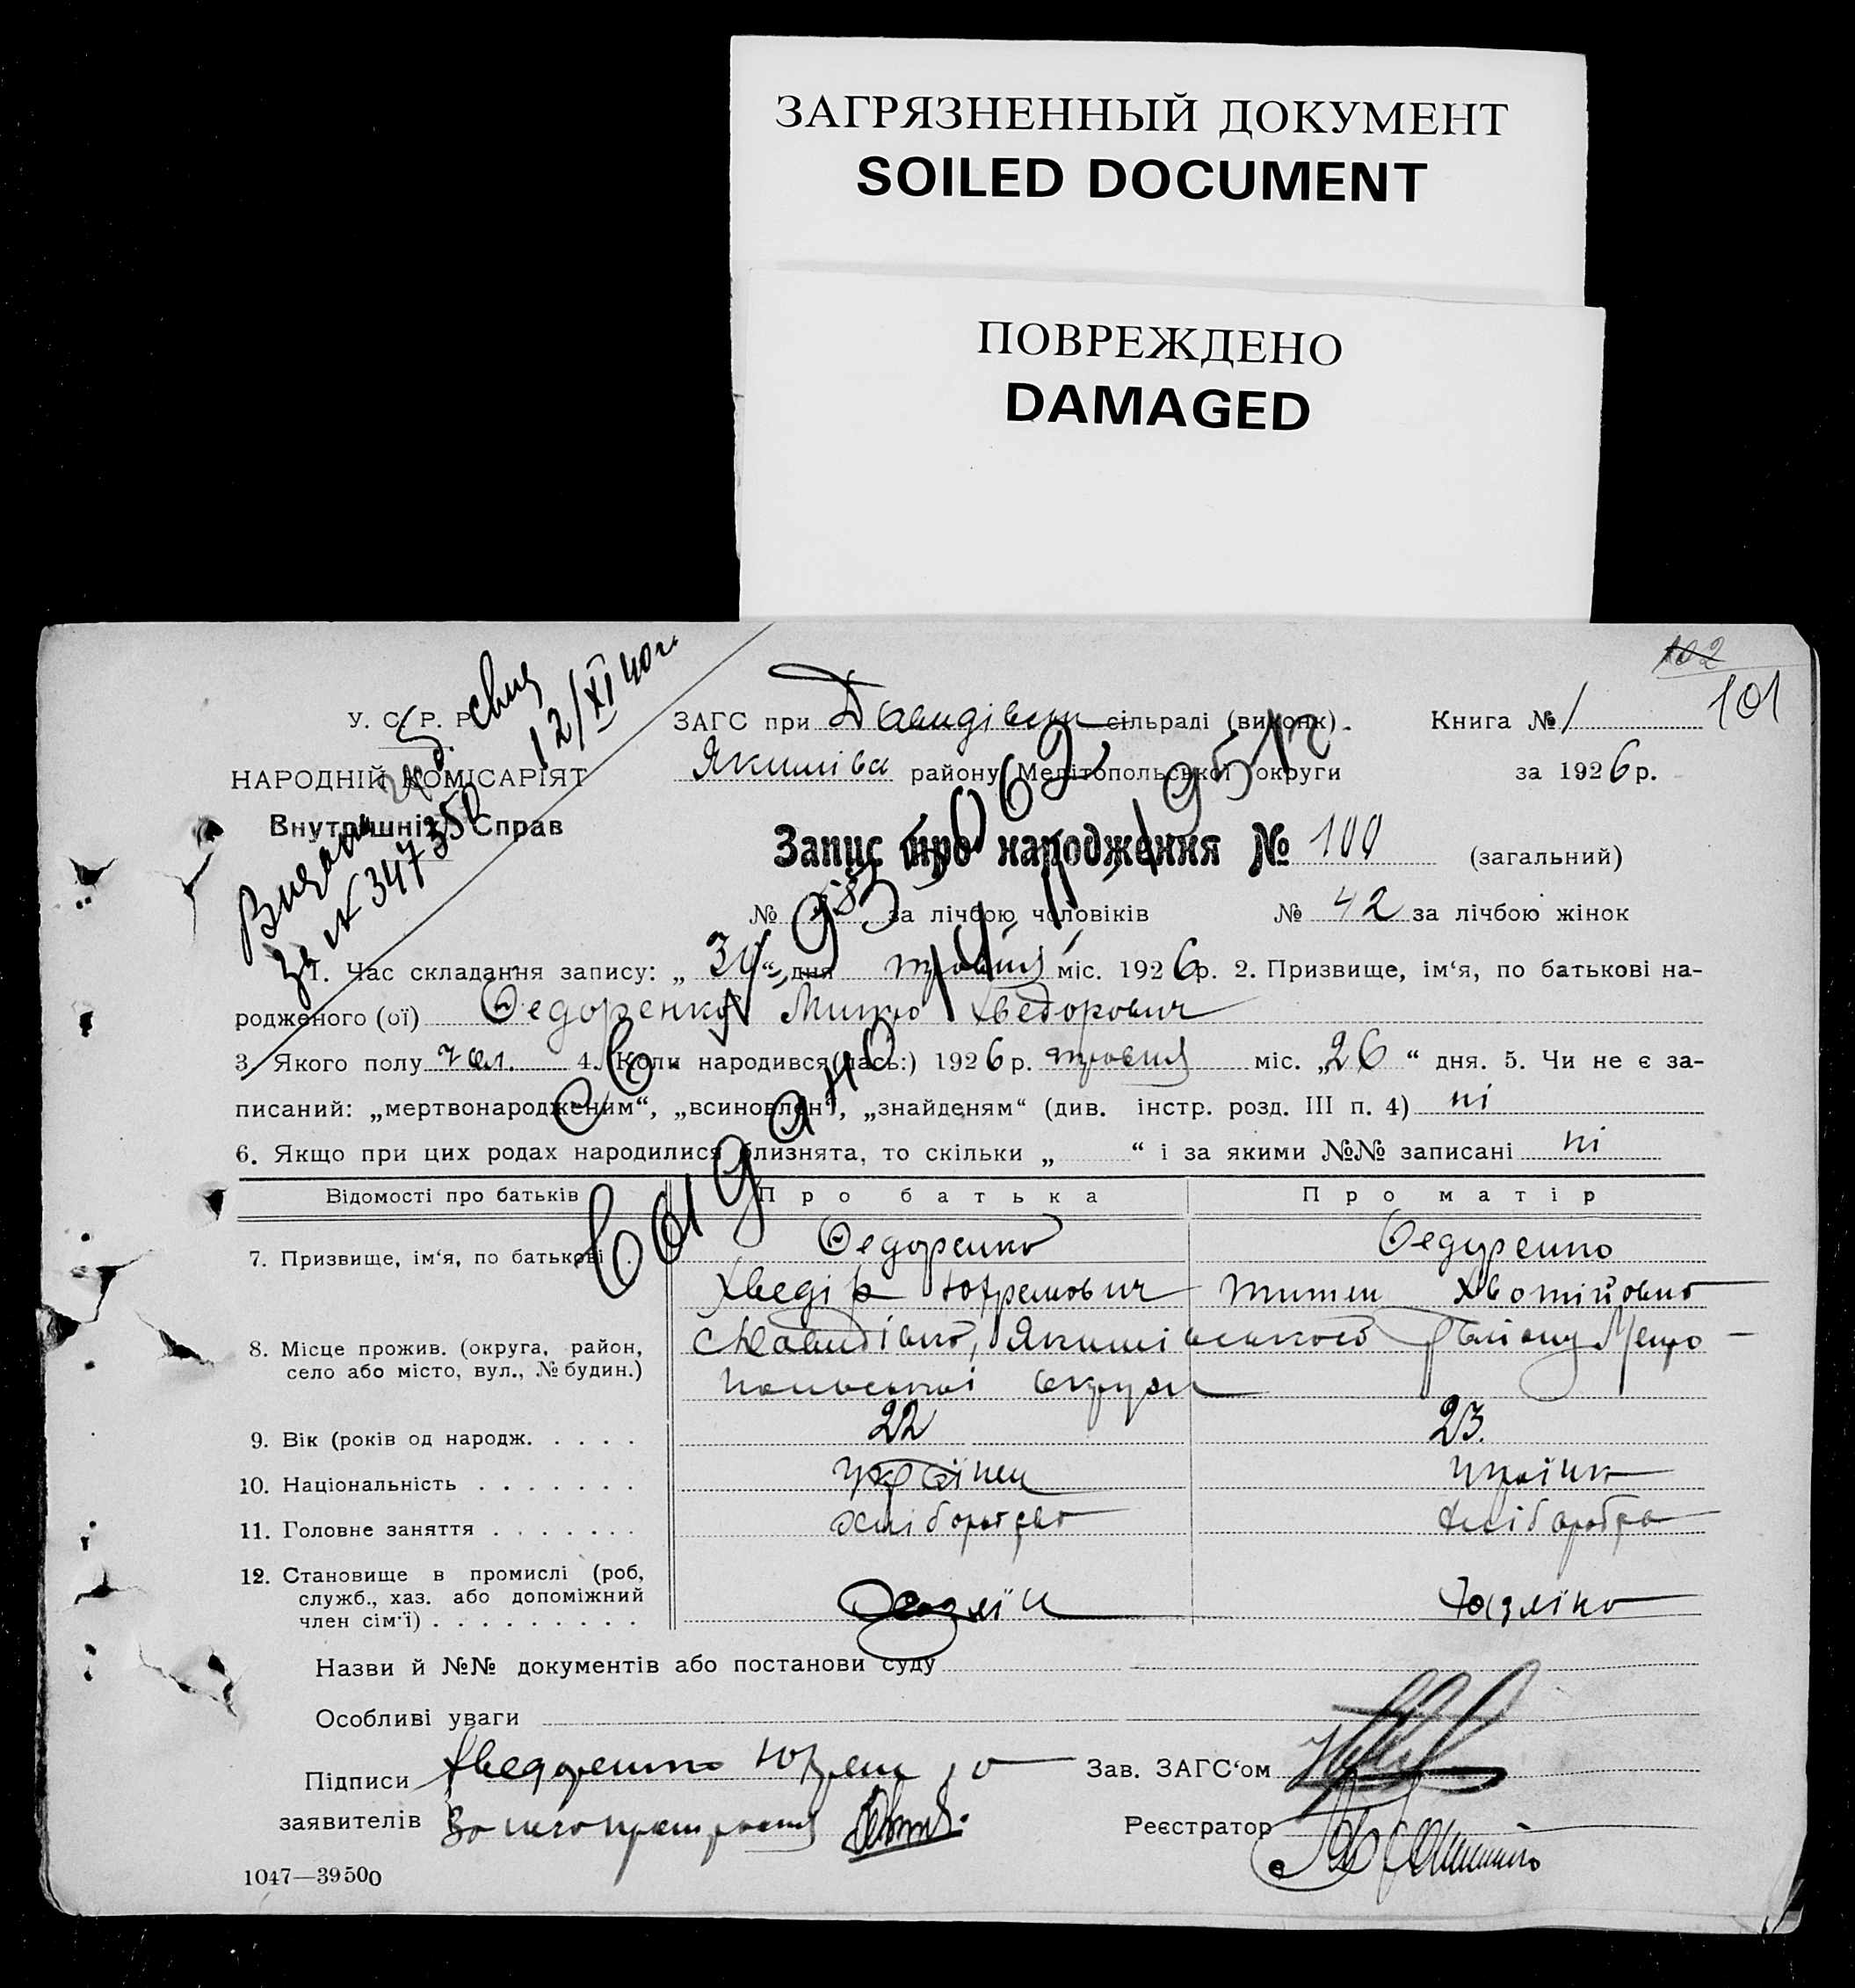 ЗАГРЯЗНЕННЫЙ ДОКУМЕНТ
SOILED DOCUMENT
ПОВРЕЖДЕНО
DAMAGED
102
101
У. С. Р. Р.
ЗАГС при Давидівськ сільраді (виконк).
Книга № 1
НАРОДНІЙ КОМІСАРІЯТ
Якимівск району Мелітопольської округи
за 1926 р.
Внутрішніх Справ
12/XI 40 г.
за № 347350
Запис про народження № 100 (загальний)
№ 58 за лічбою чоловіків № 42 за лічбою жінок
1. Час складання запису: „ 30 “ дня травня міс. 1926 р. 2. Призвище, ім‘я, по батькові на-
родженого (ої) Федоренко Митро Хведорович
3. Якого полу чол. 4. Коли народився(лась:) 1926 р. травня міс. „ 26 “ дня. 5. Чи не є за-
писаний: „мертвонародженим“, „всиновлен“, „знайденям“ (див. інстр. розд. III п. 4) ні
6. Якщо при цих родах народилися близнята, то скільки „ “ і за якими №№ записані ні
Відомості про батьків Про батька Про матір
7. Призвище, ім‘я, по батькові Федоренко Федоренко
Хведір Юхремович
8. Місце прожив. (округа, район, село або місто, вул., № будин.) с Давидівка, Якимівського району Меліто-
польської округи
9. Вік (років од народж. . . . . 22 23.
10. Національність . . . . . . . українец українк
11. Головне заняття . . . . . . . хліборобство
12. Становище в промислі (роб, служб., хаз. або допоміжний член сім‘ї) . . . . . . . . . Хазяїн Хазяїка
Назви й №№ документів або постанови суду
Особливі уваги
Підписи Хведоренко Юхрем
Зав. ЗАГС‘ом
заявителів
Реєстратор
1047—39500